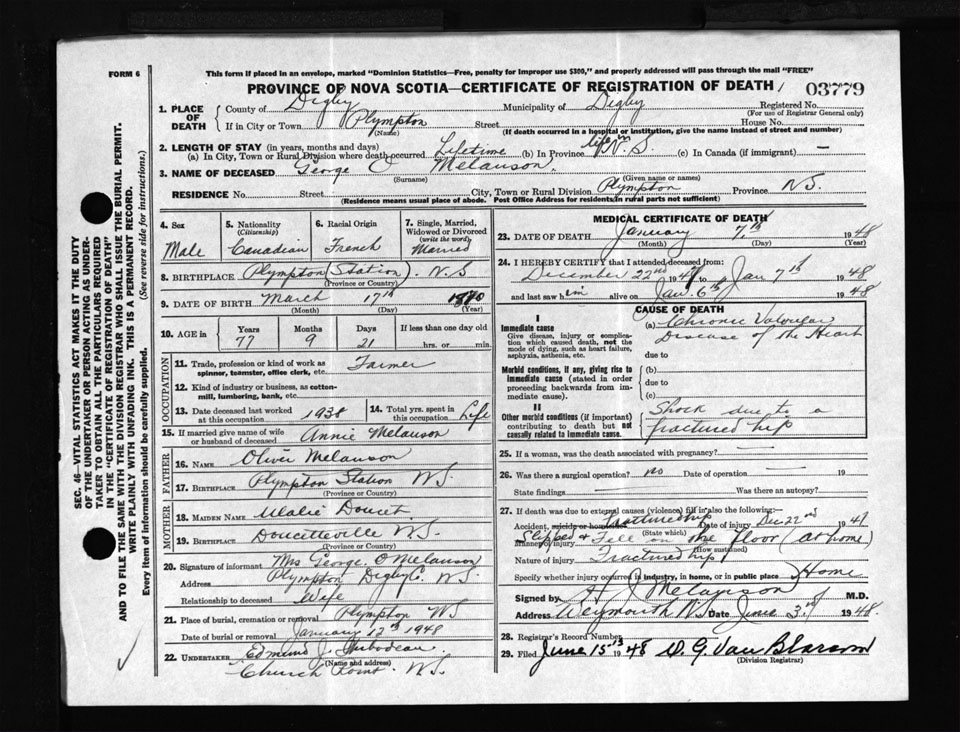 FORM 6
This form if placed in an envelope, marked "Dominion Statistics—Free, penalty for improper use $300," and properly addressed will pass through the mail "FREE"
PROVINCE OF NOVA SCOTIA—CERTIFICATE OF REGISTRATION OF DEATH
03779
1. PLACE OF DEATH
County of Digby Municipality of Digby Registered No.
(For use of Registrar General only)
If in City or Town Plympton Street House No.
(Name) (If death occurred in a hospital or institution, give the name instead of street and number)
2. LENGTH OF STAY (in years, months and days)
(a) In City, Town or Rural Division where death occurred Lifetime (b) In Province life in N.S. (c) In Canada (if immigrant) —
3. NAME OF DECEASED George O Melanson
(Surname) (Given name or names)
RESIDENCE No. Street City, Town or Rural Division Plympton Province N.S.
(Residence means usual place of abode. Post Office Address for residents in rural parts not sufficient)
4. Sex Male
5. Nationality (Citizenship) Canadian
6. Racial Origin French
7. Single, Married, Widowed or Divorced (write the word) Married
8. BIRTHPLACE Plympton (Station) N.S
(Province or Country)
9. DATE OF BIRTH March 17th 1870
(Month) (Day) (Year)
10. AGE in Years Months Days If less than one day old
77 9 21 hrs. or min.
OCCUPATION
11. Trade, profession or kind of work as spinner, teamster, office clerk, etc. Farmer
12. Kind of industry or business, as cotton-mill, lumbering, bank, etc.
13. Date deceased last worked at this occupation 1938
14. Total yrs. spent in this occupation Life
15. If married give name of wife or husband of deceased Annie Melanson
FATHER
16. NAME Oliver Melanson
17. BIRTHPLACE Plympton Station N S
(Province or Country)
MOTHER
18. MAIDEN NAME Doucet
19. BIRTHPLACE Doucetteville N.S.
(Province or Country)
20. Signature of informant Mrs George. O Melanson
Address Plympton Digby Co. N.S.
Relationship to deceased Wife
21. Place of burial, cremation or removal Plympton NS
Date of burial or removal January 12th 1948
22. UNDERTAKER Edmund J. Thibodeau
(Name and address)
Church Point N.S.
MEDICAL CERTIFICATE OF DEATH
23. DATE OF DEATH January 7.th 1948
(Month) (Day) (Year)
24. I HEREBY CERTIFY that I attended deceased from:
December 22nd 1947 to Jan 7th 1948
and last saw him alive on Jan. 6th 1948
CAUSE OF DEATH
I
Immediate cause
Give disease, injury or complication which caused death, not the mode of dying, such as heart failure, asphyxia, asthenia, etc.
(a) Chronic Valvular
Disease of the Heart
due to
Morbid conditions, if any, giving rise to immediate cause (stated in order proceeding backwards from immediate cause).
(b)
due to
(c)
II
Other morbid conditions (if important) contributing to death but not causally related to immediate cause.
Shock due to a
fractured hip
25. If a woman, was the death associated with pregnancy?
26. Was there a surgical operation? no Date of operation — 19
State findings Was there an autopsy?
27. If death was due to external causes (violence) fill in also the following:
Accident, suicide or homicide fractured hip Date of injury Dec 22nd 1947
(State which)
Manner of injury Slipped & Fell on the floor (at home)
(How sustained)
Nature of injury Fractured hip
Specify whether injury occurred in industry, in home, or in public place Home
Signed by H J Melanson M.D.
Address Weymouth N.S Date June 3rd 1948
28. Registrar's Record Number
29. Filed June 15th 1948
(Division Registrar)
SEC. 46—VITAL STATISTICS ACT MAKES IT THE DUTY OF THE UNDERTAKER OR PERSON ACTING AS UNDERTAKER TO OBTAIN ALL THE PARTICULARS REQUIRED IN THE "CERTIFICATE OF REGISTRATION OF DEATH" AND TO FILE THE SAME WITH THE DIVISION REGISTRAR WHO SHALL ISSUE THE BURIAL PERMIT.
WRITE PLAINLY WITH UNFADING INK. THIS IS A PERMANENT RECORD.
Every item of information should be carefully supplied. (See reverse side for instructions.)